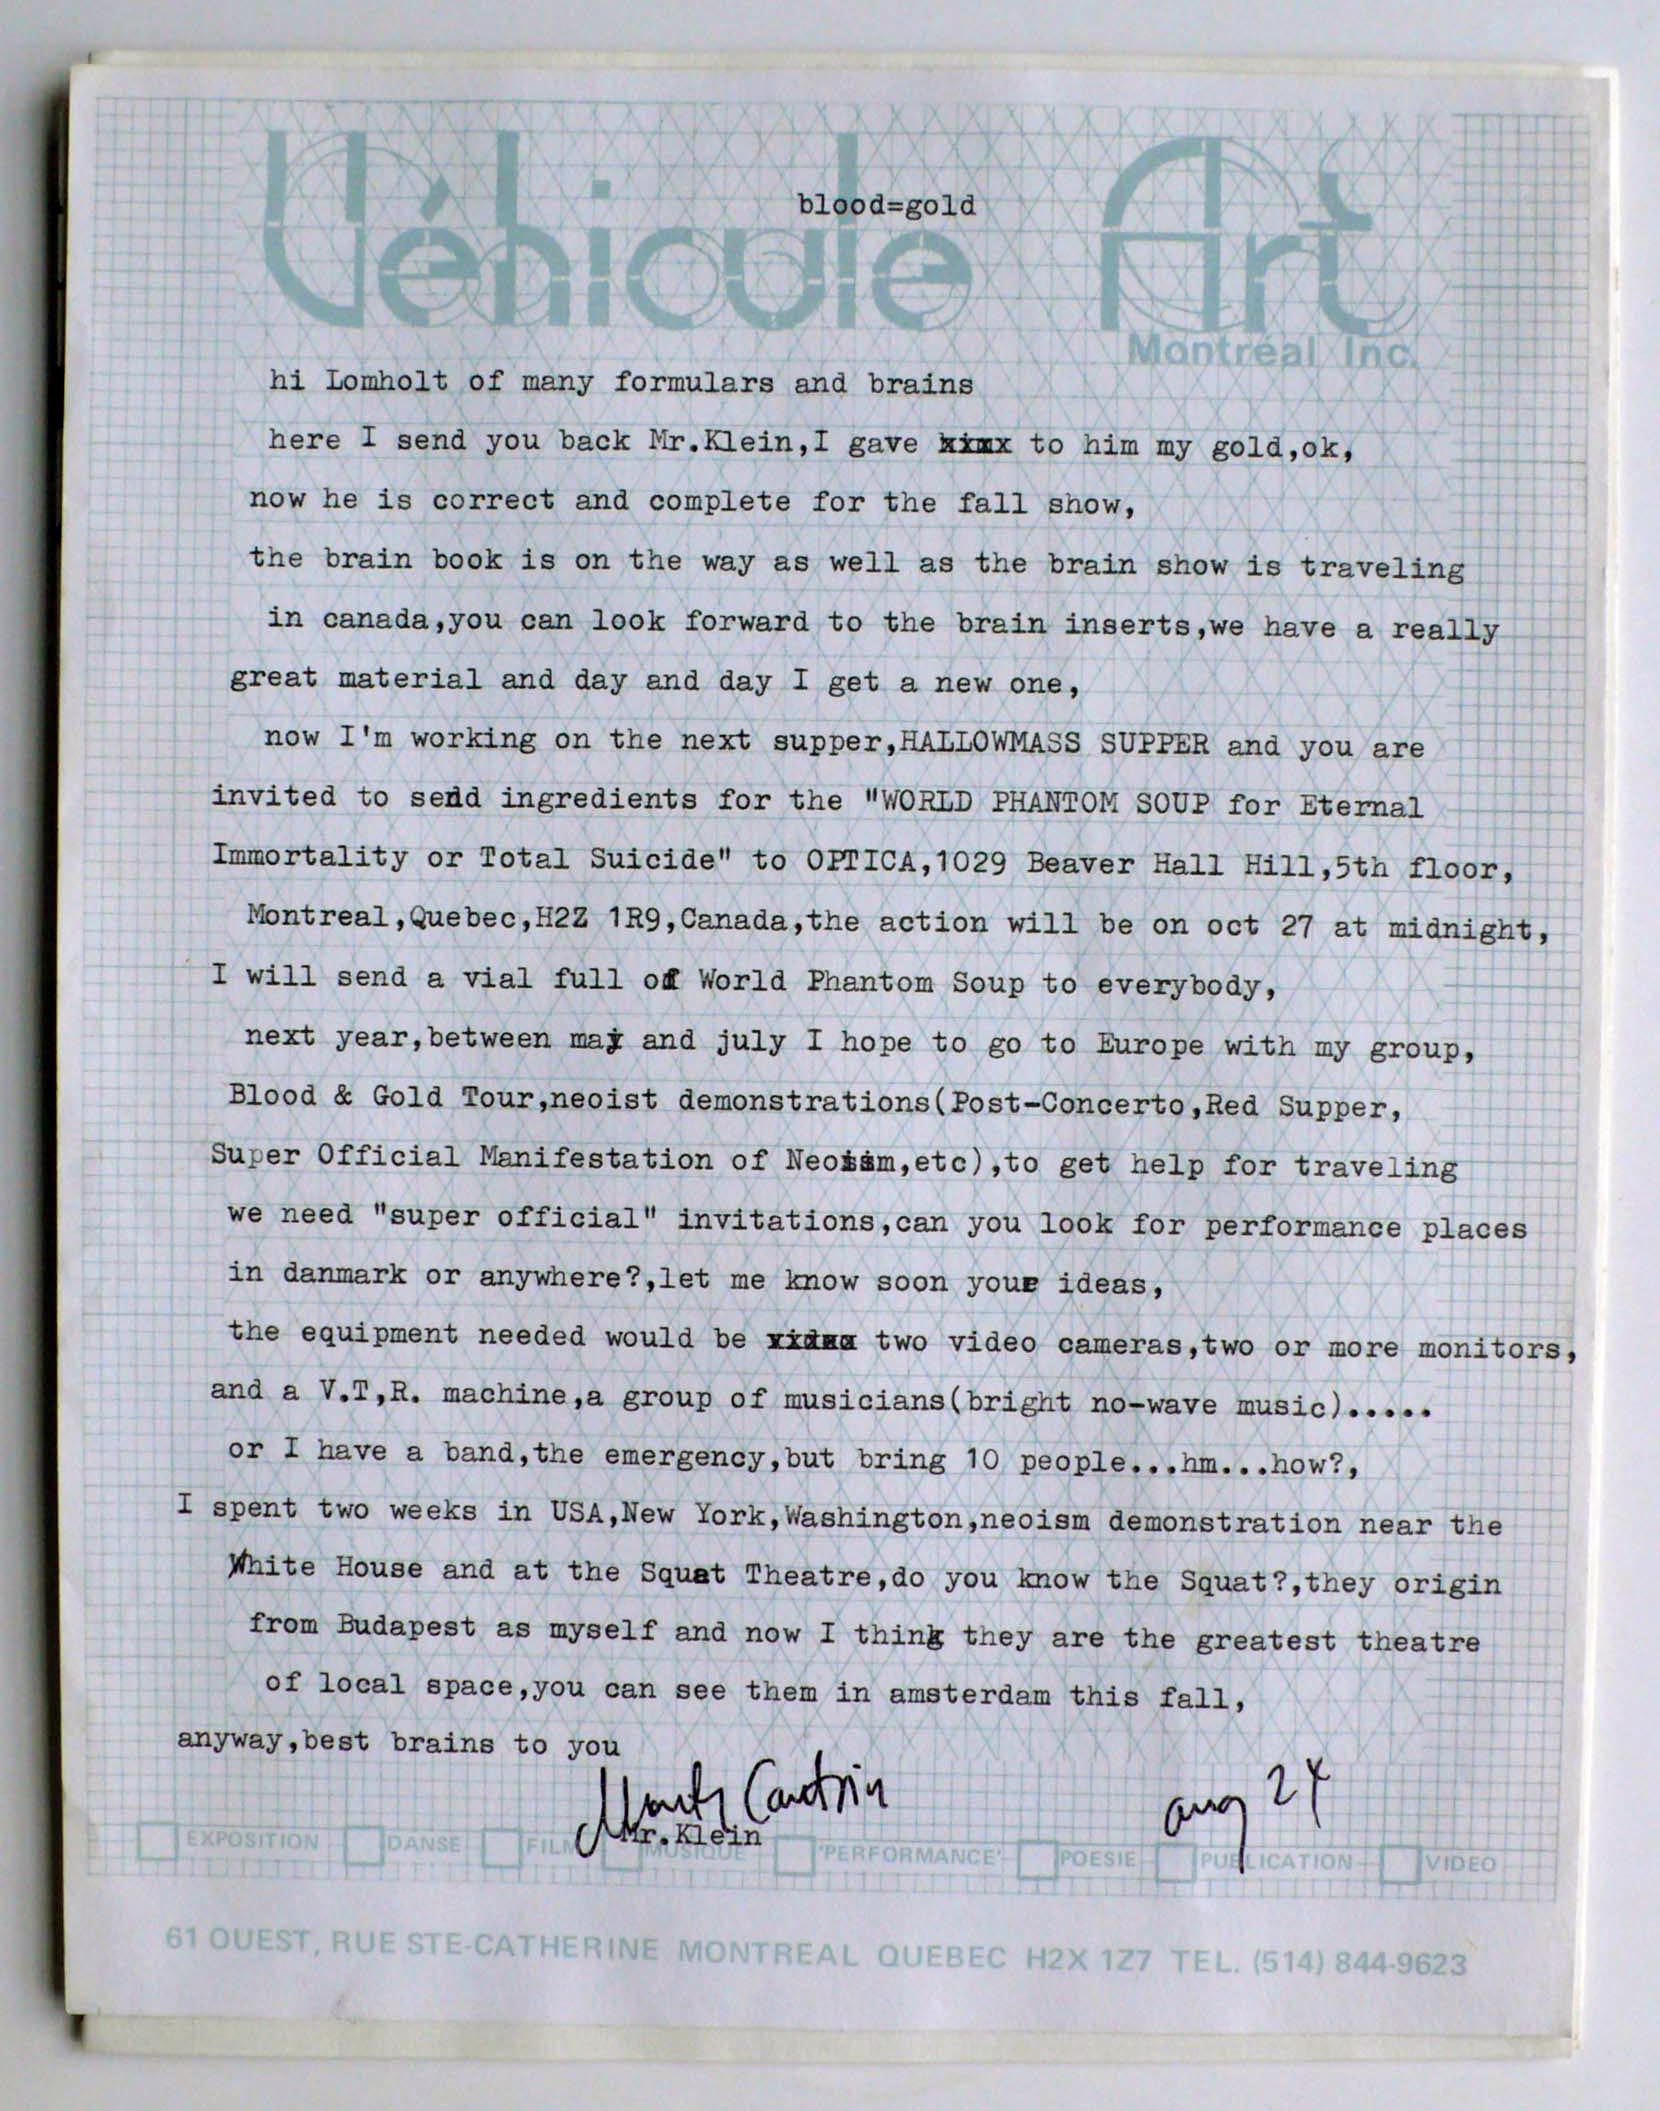 blood=gold
Véhicule Art
Montreal Inc.
hi Lomholt of many formulars and brains
here I send you back Mr.Klein,I gave to him my gold,ok,
now he is correct and complete for the fall show,
the brain book is on the way as well as the brain show is traveling
in canada,you can look forward to the brain inserts,we have a really
great material and day and day I get a new one,
now I'm working on the next supper,HALLOWMASS SUPPER and you are
invited to send ingredients for the "WORLD PHANTOM SOUP for Eternal
Immortality or Total Suicide" to OPTICA,1029 Beaver Hall Hill,5th floor,
Montreal,Quebec,H2Z 1R9,Canada,the action will be on oct 27 at midnight,
I will send a vial full of World Phantom Soup to everybody,
next year,between may and july I hope to go to Europe with my group,
Blood & Gold Tour,neoist demonstrations(Post-Concerto,Red Supper,
Super Official Manifestation of Neoism,etc),to get help for traveling
we need "super official" invitations,can you look for performance places
in danmark or anywhere?,let me know soon your ideas,
the equipment needed would be two video cameras,two or more monitors,
and a V.T,R. machine,a group of musicians(bright no-wave music).....
or I have a band,the emergency,but bring 10 people...hm...how?,
I spent two weeks in USA,New York,Washington,neoism demonstration near the
White House and at the Squat Theatre,do you know the Squat?,they origin
from Budapest as myself and now I think they are the greatest theatre
of local space,you can see them in amsterdam this fall,
anyway,best brains to you
Monty Cantsin
aug 24
Mr.Klein
EXPOSITION DANSE FILM MUSIQUE 'PERFORMANCE' POESIE PUBLICATION VIDEO
61 OUEST, RUE STE-CATHERINE MONTREAL QUEBEC H2X 1Z7 TEL. (514) 844-9623